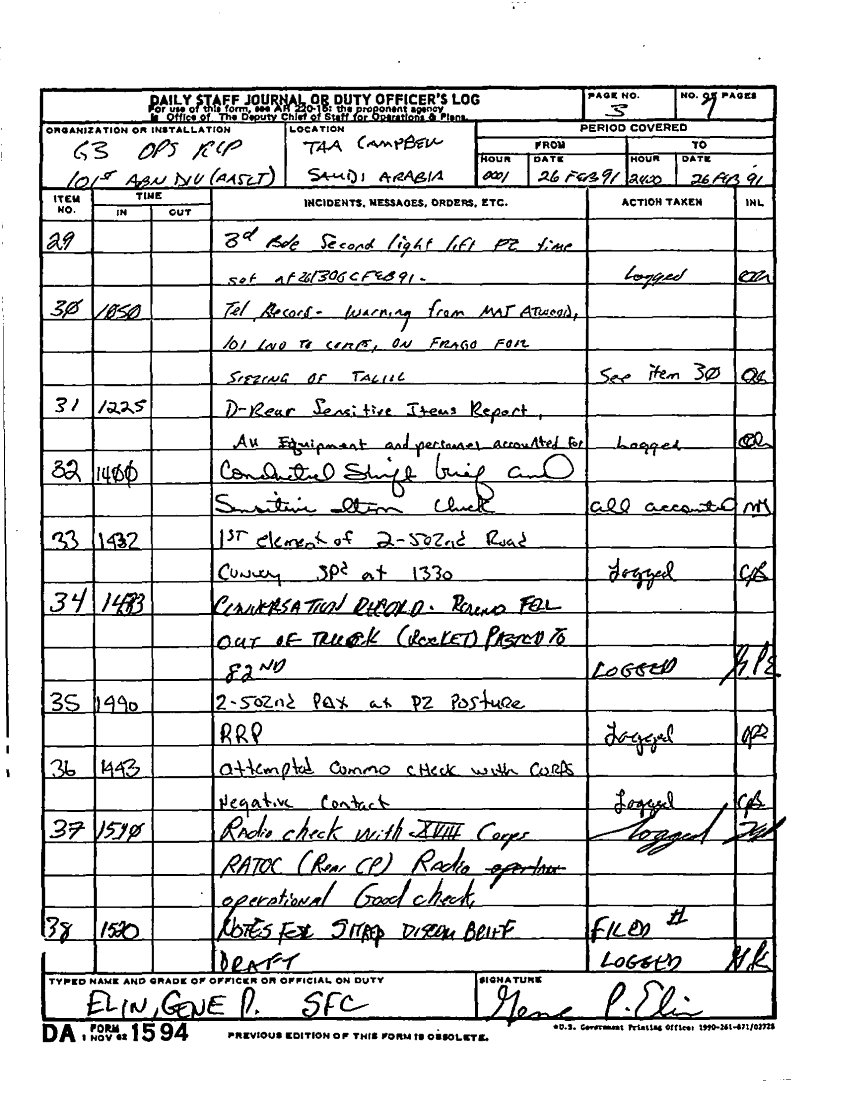 DAILY STAFF JOURNAL OR DUTY OFFICER'S LOG
For use of this form, see AR 220-15; the proponent agency
is Office of The Deputy Chief of Staff for Operations & Plans.
PAGE NO.
3
NO. OF PAGES
ORGANIZATION OR INSTALLATION
G3 OPS RCP
101ST ABN DIV (AASLT)
LOCATION
TAA CAMPBELL
SAUDI ARABIA
PERIOD COVERED
FROM
TO
HOUR
DATE
HOUR
DATE
0001
26 FEB 91
2400
26 FEB 91
ITEM NO.
TIME
IN
OUT
INCIDENTS, MESSAGES, ORDERS, ETC.
ACTION TAKEN
INL
29 3d Bde Second light lift PZ time
set AT 261306C FEB 91- Logged
30 1050 Tel Record- Warning from MAJ Atwood,
101 LNO TO CORPS, ON FRAGO FOR
SIEZING OF TALLIL See item 30
31 1225 D-Rear Sensitive Items Report,
All Equipment and personel accounted for Logged
32 1400 Conducted Shift brief and
Sensitive Item Check all accounted
33 1432 1ST element of 2-502nd Road
Convoy SPd at 1330 Logged CB
34 CONVERSATION RECORD. FELL
OUT OF TRUCK (ROCKET) PASSED TO
82ND LOGGED
35 1440 2-502nd PAX at PZ Posture
RRP Logged
36 1443 attempted Commo check with CORPS
Negative Contact Logged CB
37 1510 Radio check with XVIII Corps logged
RATOC (Rear CP) Radio
operational Good check.
38 1520 NOTES FOR SITREP DISCOM BRIEF FILED #
DRAFT LOGGED
TYPED NAME AND GRADE OF OFFICER OR OFFICIAL ON DUTY
ELIN, GENE P. SFC
SIGNATURE
Gene P. Elin
DA FORM 1 NOV 62 1594
PREVIOUS EDITION OF THIS FORM IS OBSOLETE.
*U.S. Government Printing Office: 1990-261-871/02728